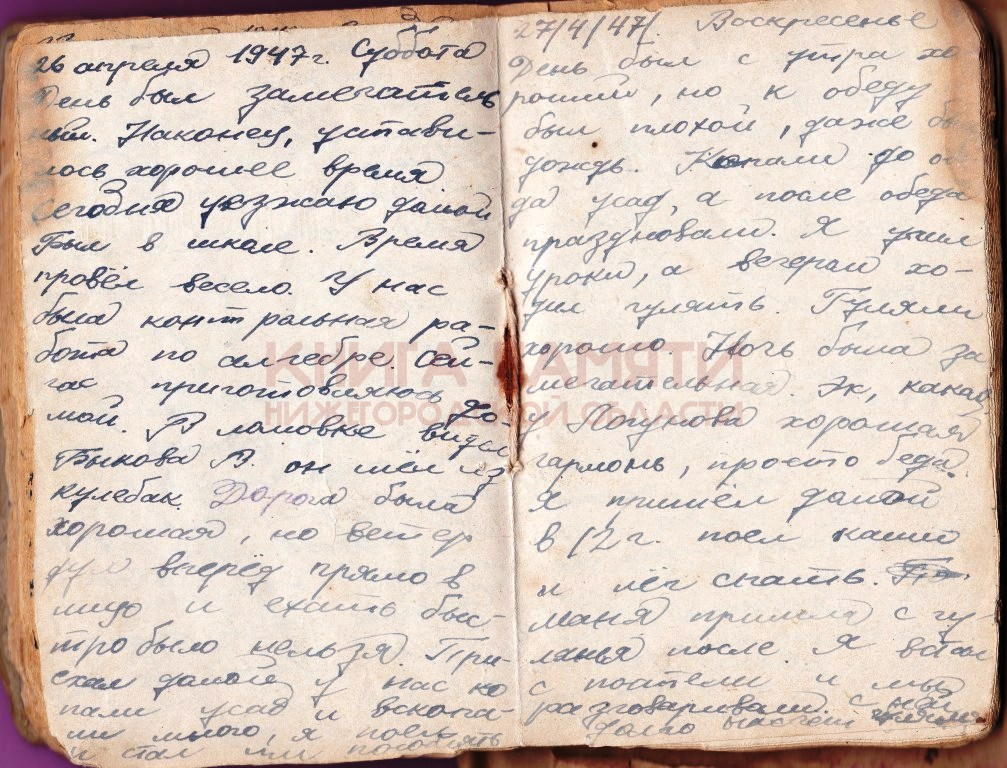 26 апреля 1947г. Суббота
День был замечатель
ный. Наконец, устави-
лось хорошее время
Сегодня уезжаю домой
Был в школе. Время
провёл весело. У нас
была контрольная ра-
бота по алгебре. Сей-
час приготовляюсь до
мой. В ломовке видел
Быкова В. он шёл из
кулебак. Дорога была
хорошая, но ветер
дул вперёд прямо в
лицо и ехать быс-
тро было нельзя. При-
ехал домой у нас ко
пали усад и вскопа-
ли много, я поел
и стал им помогать
27/4/47г. Воскресенье
День был с утра хо
роший, но к обеду
был плохой, даже был
дождь. Копали до об
да усад, а после обеда
праздновали. Я учил
уроки, а вечером хо-
дил гулять. Гуляли
хорошо. Ночь была за
мечательная. Эх, какая
у хорошая
гармонь, просто беда.
Я пришёл домой
в 12 г. поел каши
и лёг спать.
маня пришла с гу
лянья после я встал
с постели и мы
разговаривали с ней
долго
КНИГА ПАМЯТИ
НИЖЕГОРОДСКОЙ ОБЛАСТИ